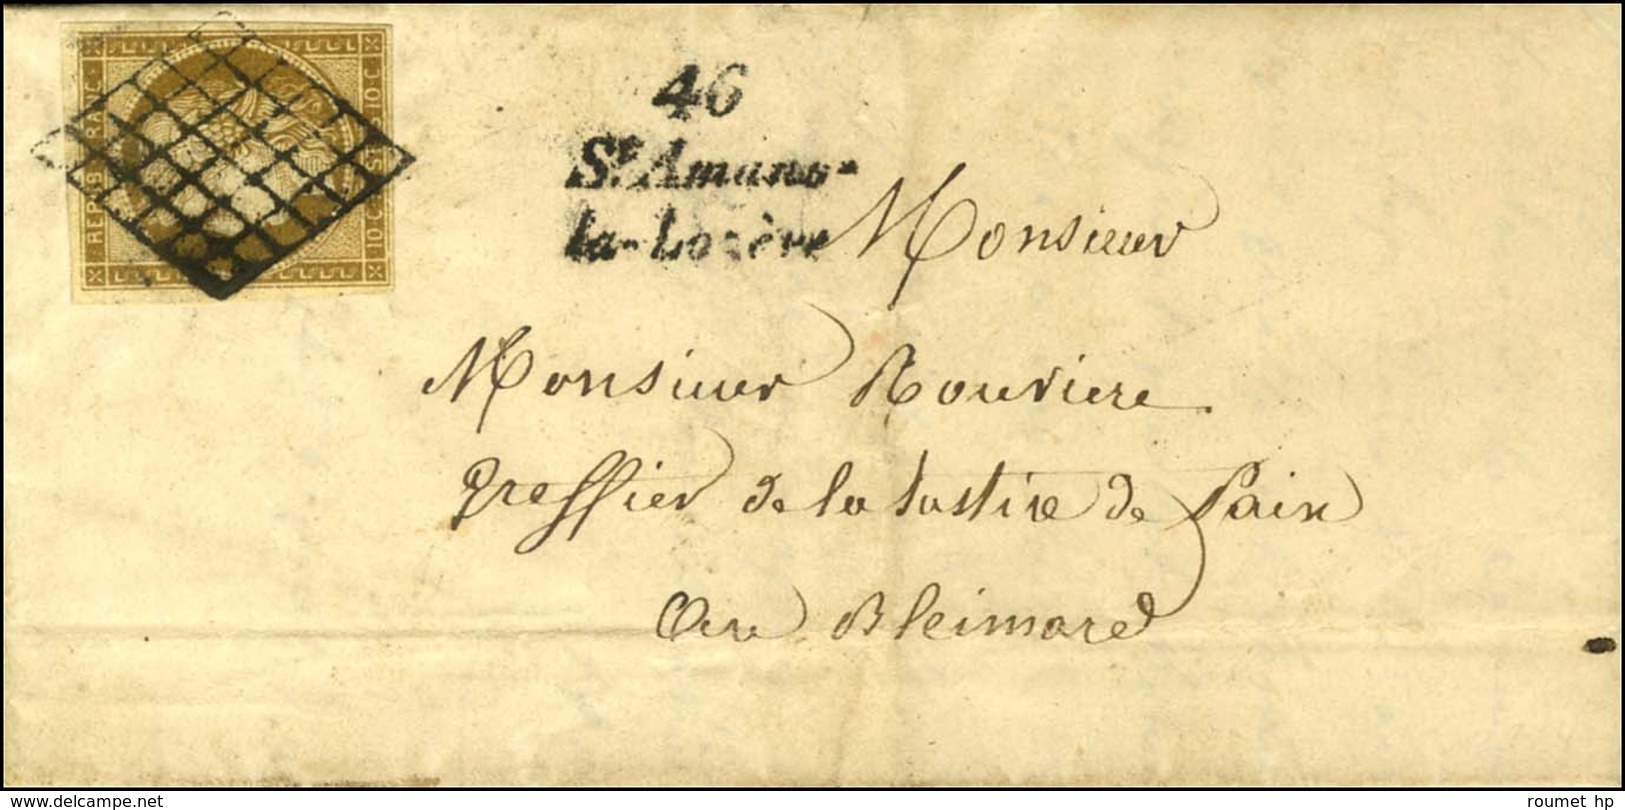 REPUB FRANC
10 C
10 C
46
St Amans-
la-Lozère
Monsieur
Monsieur Rouviere
greffier de la Justice de Paix
Bleimard
www.delcampe.net
roumet hp